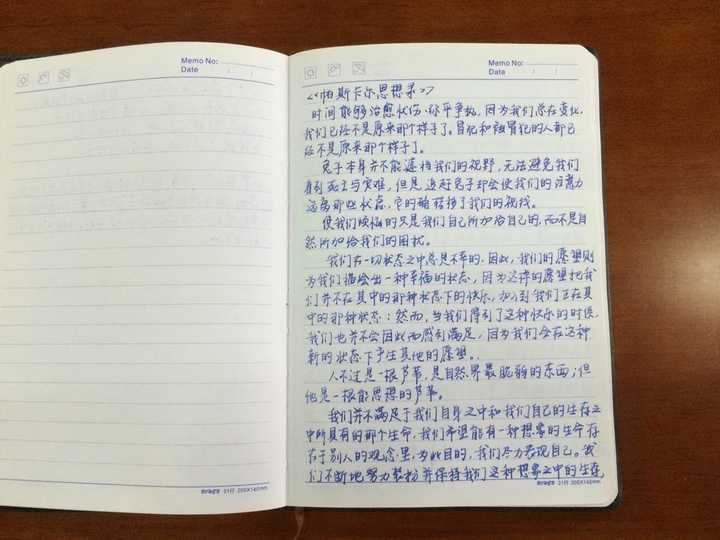 Memo No:
Date / /
Memo No:
Date / /
<<帕斯卡尔思想录>>
时间能够治愈忧伤、弥平争执，因为我们总在变化，
我们已经不是原来那个样子了。冒犯和被冒犯的人都已
经不是原来那个样子了。
兔子本身并不能遮挡我们的视野，无法避免我们
看到死亡与灾难，但是追赶兔子却会使我们的注意力
远离那些状态，它的确转移了我们的视线。
使我们烦恼的只是我们自己所加给自己的，而不是自
然所加给我们的困扰。
我们在一切状态之中总是不幸的，因此，我们的愿望则
为我们描绘出一种幸福的状态，因为这样的愿望把我
们并不在其中的那种状态下的快乐，加入到我们正在其
中的那种状态；然而，当我们得到了这种快乐的时候，
我们也并不会因此而感到满足，因为我们会在这种
新的状态下产生其他的愿望。
人不过是一根芦苇，是自然界最脆弱的东西；但
他是一根能思想的芦苇。
我们并不满足于我们自身之中和我们自己的生存之
中所具有的那个生命，我们希望能有一种想象的生命存
在于别人的观念里，为此目的，我们尽力表现自己。我
们不断地努力装扮并保持我们这种想象之中的生存
31行 200X140mm
31行 200X140mm